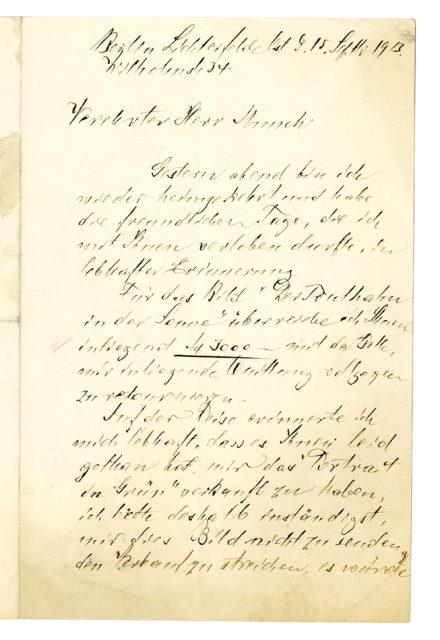 Berlin Lichterfelde Ost d. 15. Septb 1913.
Wilhelmstr 34.
Verehrter Herr Munch!
Gestern abend bin ich
wieder heimgekehrt und habe
die freundlichen Tage, die ich
mit Ihnen verleben durfte, in
lebhafter Erinnerung.
Für das Bild "Der Truthahn
in der Sonne" überreiche ich Ihnen
inliegend M 3000 – mit der Bitte,
mir inliegende Quittung vollzogen
zu retournieren.
Auf der Reise erinnerte ich
mich lebhaft, dass es Ihnen leid
gethan hat, mir das "Portrait
in Grün" verkauft zu haben,
ich bitte deshalb inständigst,
mir dies Bild nicht zu senden,
den Verkauf zu streichen, es würde